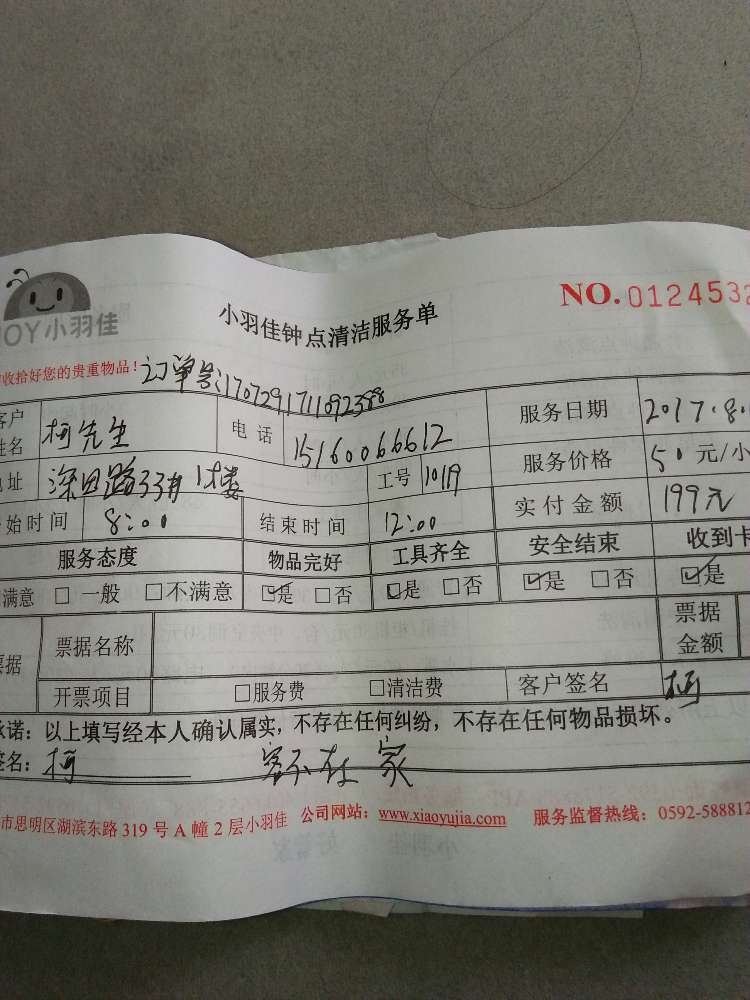 OY小羽佳
小羽佳钟点清洁服务单
NO. 0124532
收拾好您的贵重物品！ 订单号:1707291711092388
客户姓名 柯先生 电话 15160066612 服务日期 2017.8.
地址 深田路33号1楼 工号 1019 服务价格 50元/小
始时间 8:00 结束时间 12:00 实付金额 199元
服务态度 物品完好 工具齐全 安全结束 收到卡
满意 □一般 □不满意 ☑是 □否 ☑是 □否 ☑是 □否 ☑是
票据 票据名称 票据金额
开票项目 □服务费 □清洁费 客户签名 柯
承诺：以上填写经本人确认属实，不存在任何纠纷，不存在任何物品损坏。
签名：柯 客不在家
市思明区湖滨东路319号A幢2层小羽佳 公司网站：www.xiaoyujia.com 服务监督热线：0592-588812